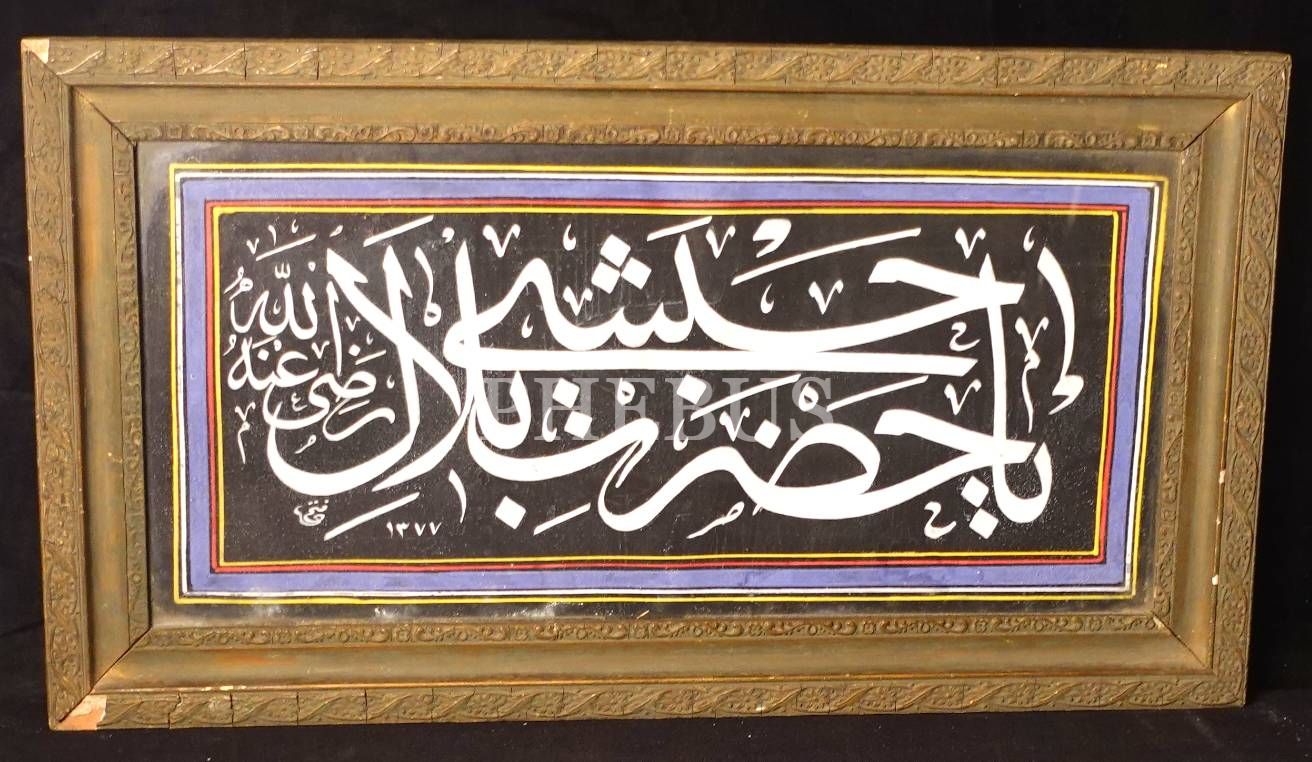 يا حضرت بلال حبشی
رضي الله عنه
فتحي
١٣٧٧
PHEBUS